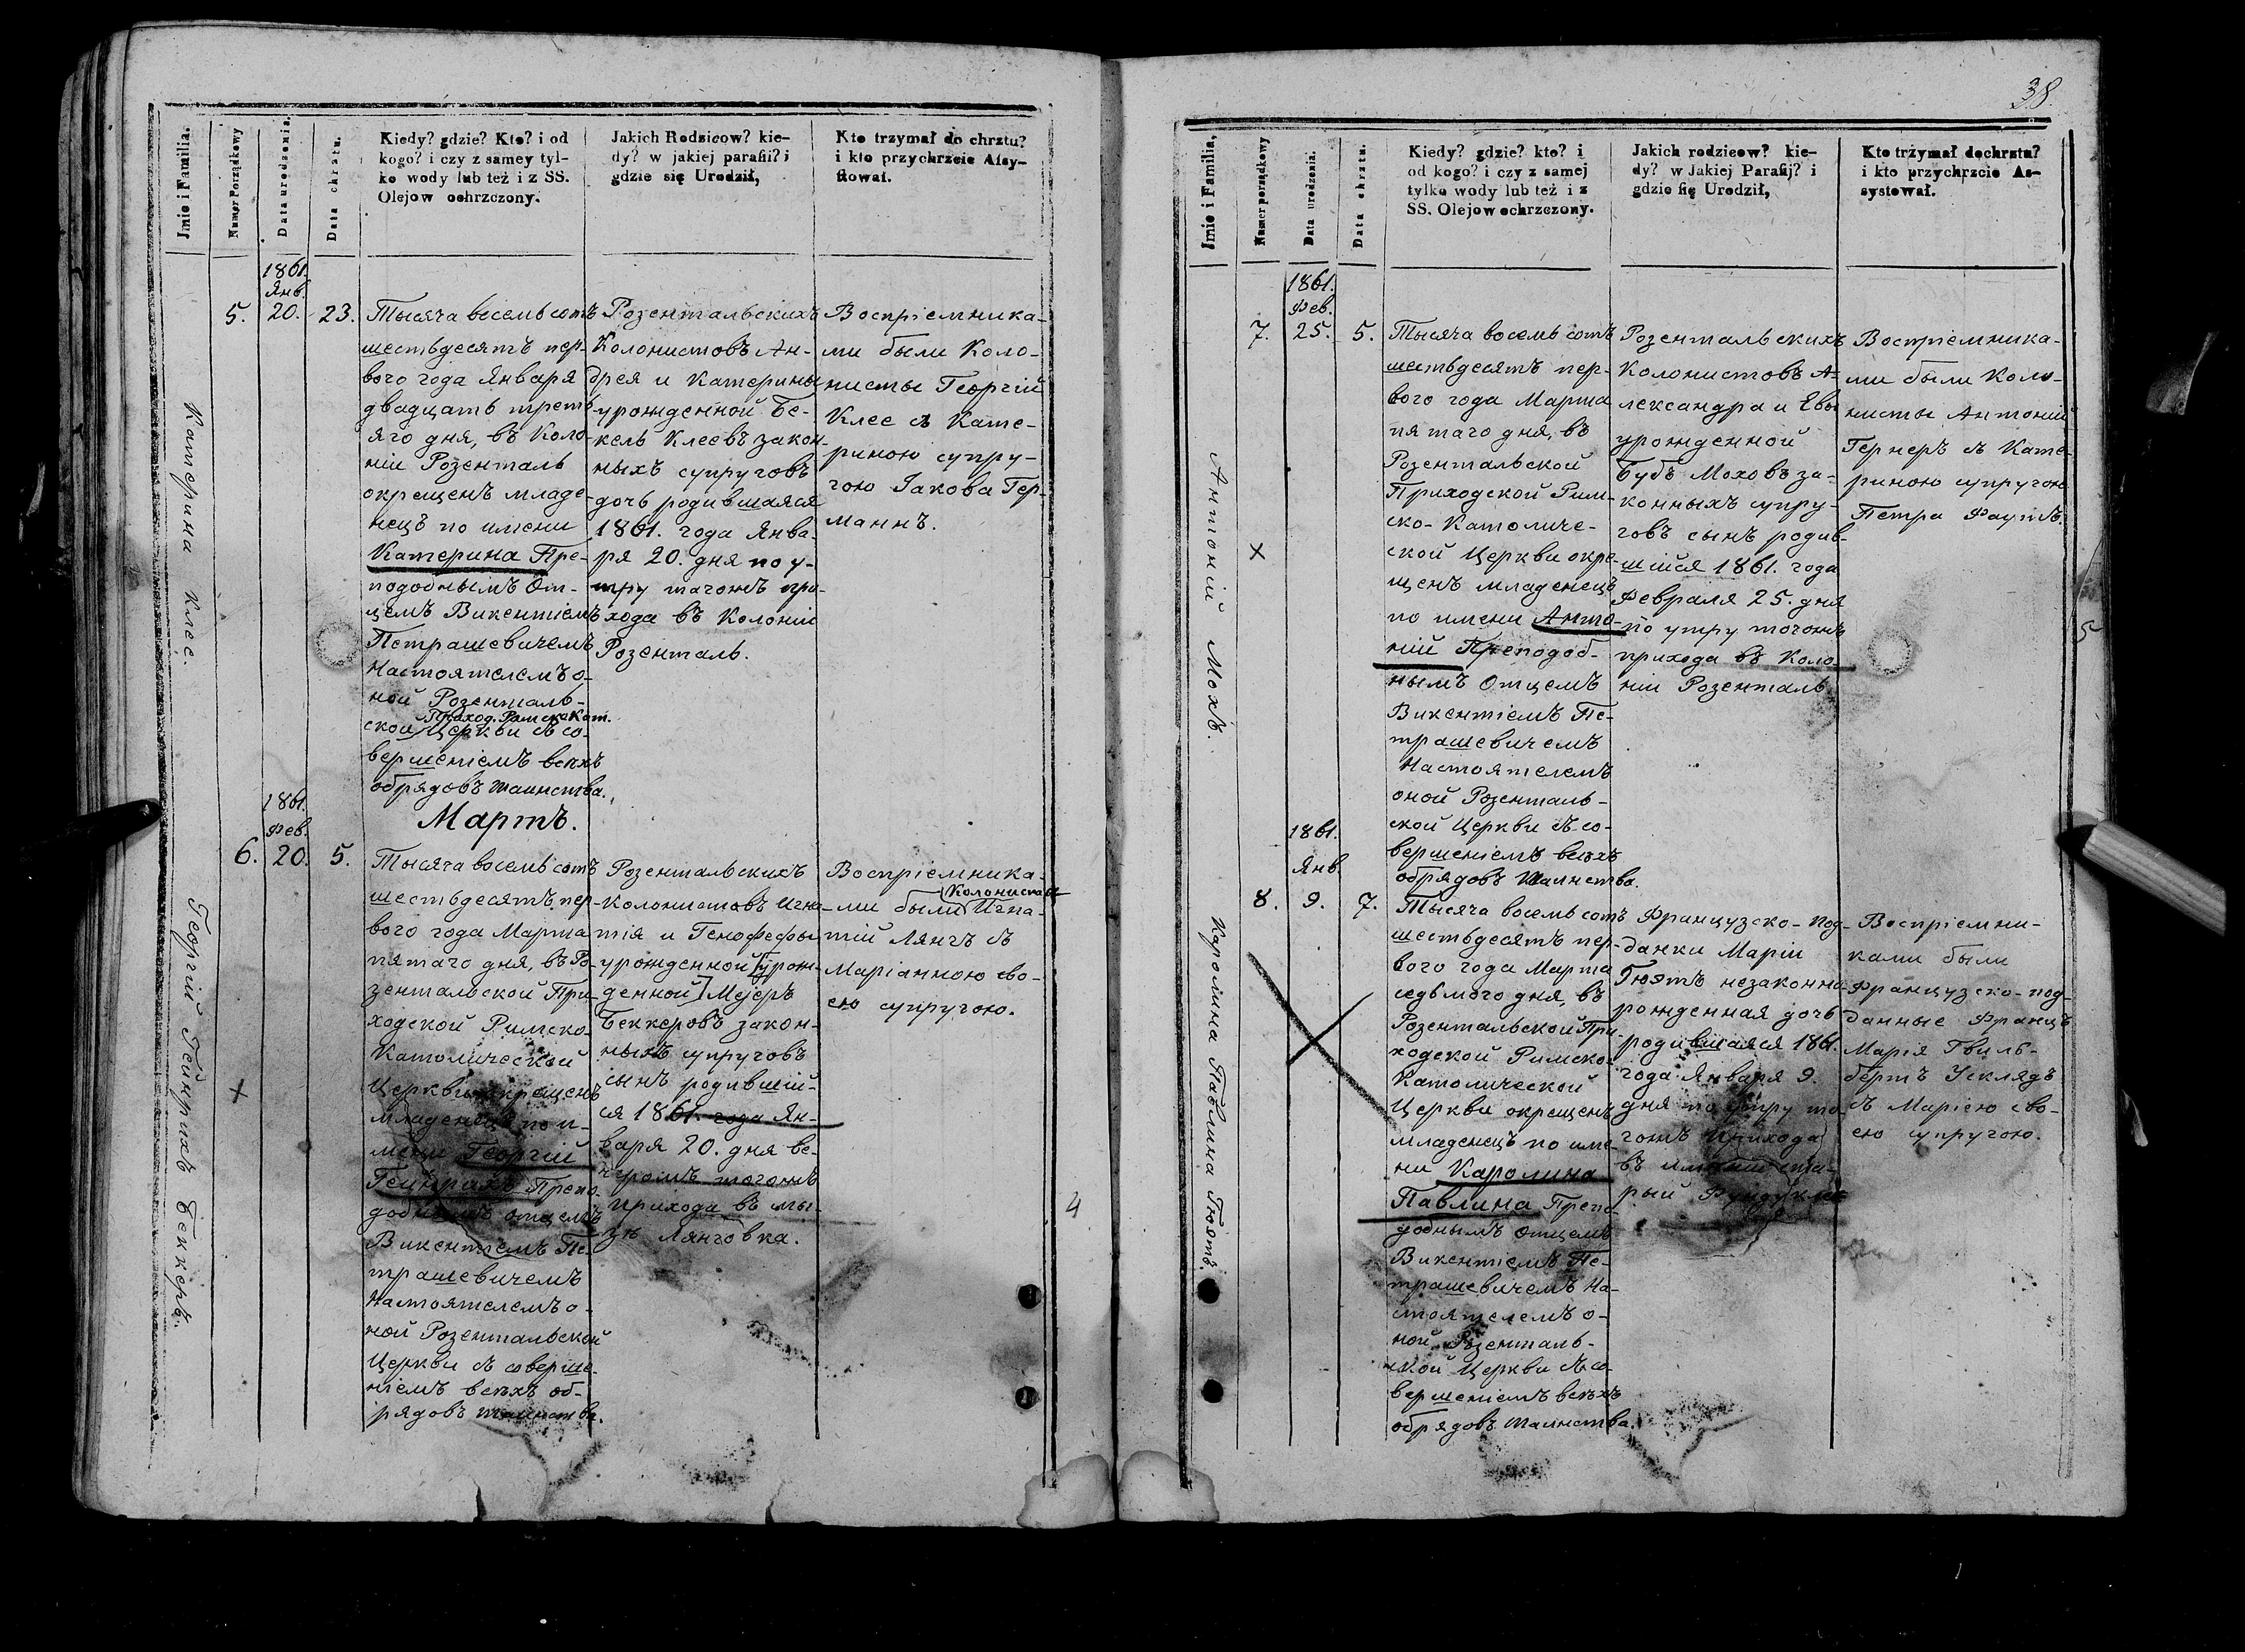 38.
Jmie i Familia.
Numer Porządkowy
Data urodzenia.
Data chrztu.
Kiedy? gdzie? Kto? i od
kogo? i czy z samey tyl-
ko wody lub też i z SS.
Olejow ochrzczony.
Jakich Rodzicow? kie-
dy? w jakiej parafii? i
gdzie się Urodził,
Kto trzymał do chrztu?
i kto przychrzcie Assy-
stował.
Катерина Клее.
5.
1861.
Янв.
20.
23.
Тысяча восемь сотъ
шестьдесятъ пер-
вого года Января
двадцать треть-
яго дня, въ Коло-
ніи Розенталь
окрещенъ младе-
нецъ по имени
Катерина Пре-
подобнымъ От-
цемъ Викентіемъ
Петрашевичемъ
Настоятелемъ о-
ной Розенталь-
Приход. Римск. Кат.
ской Церкви съ со-
вершеніемъ всѣхъ
обрядовъ таинства.
Розентальскихъ
Колонистовъ Ан-
дрея и Катерины
урожденной Бе-
кель Клеевъ закон-
ныхъ супруговъ
дочь родившаяся
1861. года Янва-
ря 20. дня по у-
тру тогожъ при-
хода въ Колоніи
Розенталь.
Воспріемника-
ми были Коло-
нисты Георгій
Клее съ Кате-
риною супру-
гою Іакова Гер-
маннъ.
Мартъ.
Георгій Гейнрихъ Беккеръ.
6.
1861.
Фев.
20.
5.
Тысяча восемь сотъ
шестьдесятъ пер-
вого года Марта
пятаго дня, въ Ро-
зентальской При-
ходской Римско-
Католической
Церкви окрещенъ
младенецъ по и-
мени Георгій
Гейнрихъ Препо-
добнымъ отцемъ
Викентіемъ Пе-
трашевичемъ
Настоятелемъ о-
ной Розентальской
Церкви съ соверше-
ніемъ всѣхъ об-
рядовъ таинства.
Розентальскихъ
Колонистовъ Игна-
тія и Генофефы
урожденной [урож-
денной] Мейеръ
Беккеровъ закон-
ныхъ супруговъ
сынъ родившій-
ся 1861. года Ян-
варя 20. дня ве-
чуромъ тогожъ
прихода въ мы-
зѣ Лянговка.
Воспріемника-
Колонисты
ми были Игна-
тій Лянгъ съ
Маріанною сво-
ею супругою.
4
Jmie i Familia.
Numer porządkowy
Data urodzenia.
Data chrztu.
Kiedy? gdzie? kto? i
od kogo? i czy z samej
tylko wody lub też i z
SS. Olejow ochrzczony.
Jakich rodzicow? kie-
dy? w Jakiej Parafij? i
gdzie się Urodził,
Kto trzymał dochrztu?
i kto przychrzcie As-
systował.
Антоній Мохъ.
7.
1861.
Фев.
25.
5.
Тысяча восемь сотъ
шестьдесятъ пер-
вого года Марта
пятаго дня, въ
Розентальской
Приходской Рим-
ско-Католиче-
ской Церкви окре-
щенъ младенецъ
по имени Анто-
ній Преподоб-
нымъ Отцемъ
Викентіемъ Пе-
трашевичемъ
Настоятелемъ
оной Розенталь-
ской Церкви съ со-
вершеніемъ всѣхъ
обрядовъ таинства.
Розентальскихъ
Колонистовъ А-
лександра и Евы
урожденной
Бубъ Моховъ за-
конныхъ супру-
говъ сынъ родив-
шійся 1861. года
Февраля 25. дня
по утру тогожъ
прихода въ Коло-
ніи Розенталь
Воспріемника-
ми были Коло-
нисты Антоній
Гернеръ съ Кате-
риною супругою
Петра Фаутъ.
Каролина Павлина Гюятъ.
8.
1861.
Янв.
9.
7.
Тысяча восемь сотъ
шестьдесятъ пер-
вого года Марта
седьмого дня, въ
Розентальской При-
ходской Римско-
Католической
Церкви окрещенъ
младенецъ по име-
ни Каролина
Павлина Препо-
добнымъ Отцемъ
Викентіемъ Пе-
трашевичемъ На-
стоятелемъ о-
ной Розенталь-
ской Церкви съ со-
вершеніемъ всѣхъ
обрядовъ таинства.
Французско-под-
данки Маріи
Гюятъ незаконно
рожденная дочь
родившаяся 1861.
года Января 9.
дня по утру то-
гожъ прихода
въ имѣніи ста-
рый
Воспріемни-
ками были
Французско-под-
данные Францъ
Марія Гвиль-
бертъ Усклядъ
съ Маріею сво-
ею супругою.